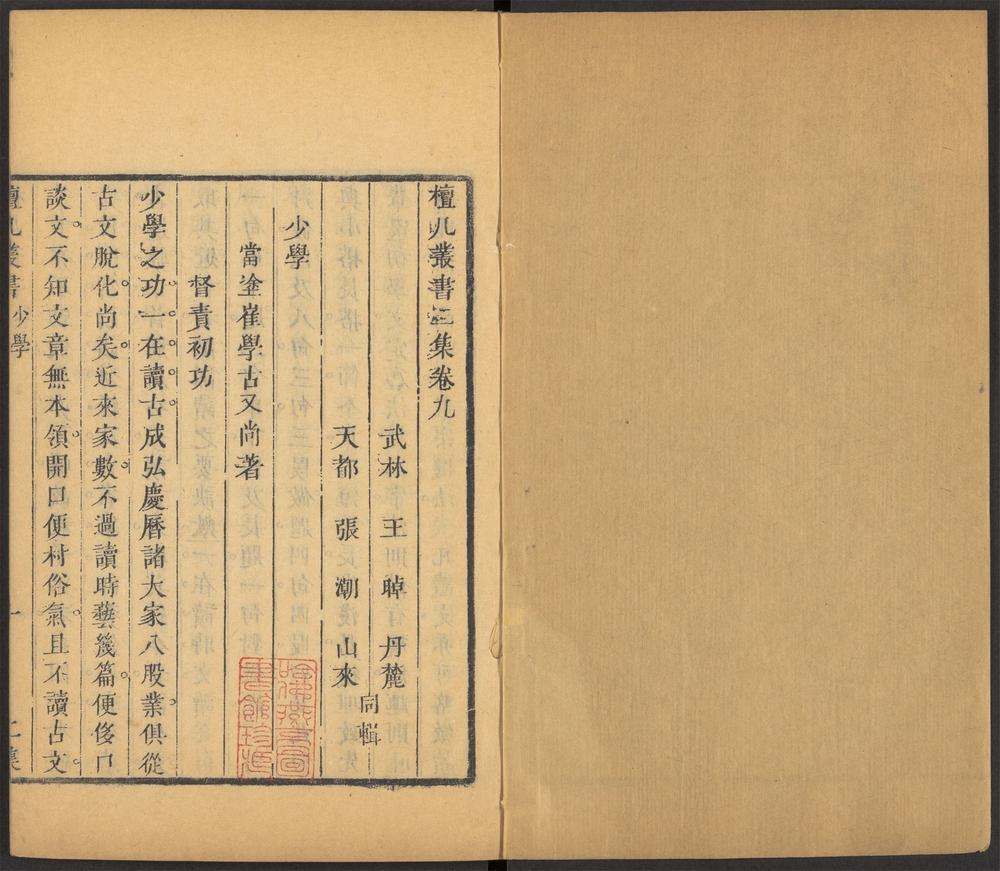 檀几叢書二集卷九
武林 王晫 丹麓
天都 張潮 山來
同輯
少學
當塗崔學古又尚著
督責初功
少學之功一在讀古成弘慶曆諸大家八股業俱從
古文脫化尚矣近來家數不過讀時藝幾篇便侈口
談文不知文章無本領開口便村俗氣且不讀古文
檀几叢書 少學 一 二集
哈佛燕京圖
書館珍藏印